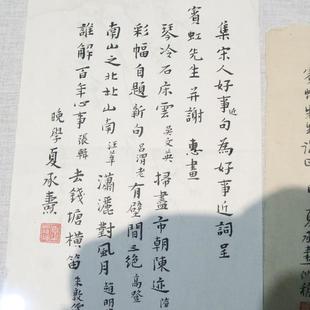 集宋人好事近句為好事近詞呈
賓虹先生并謝 惠畫
琴冷石床雲 吳文英 掃盡市朝陳迹
彩幅自題新句 呂渭老 有壁間三絶 高登
南山之北北山南 汪莘 瀟灑對風月 趙明
誰解百年心事 張輯 去錢塘橫笛 朱敦儒
晚學夏承燾